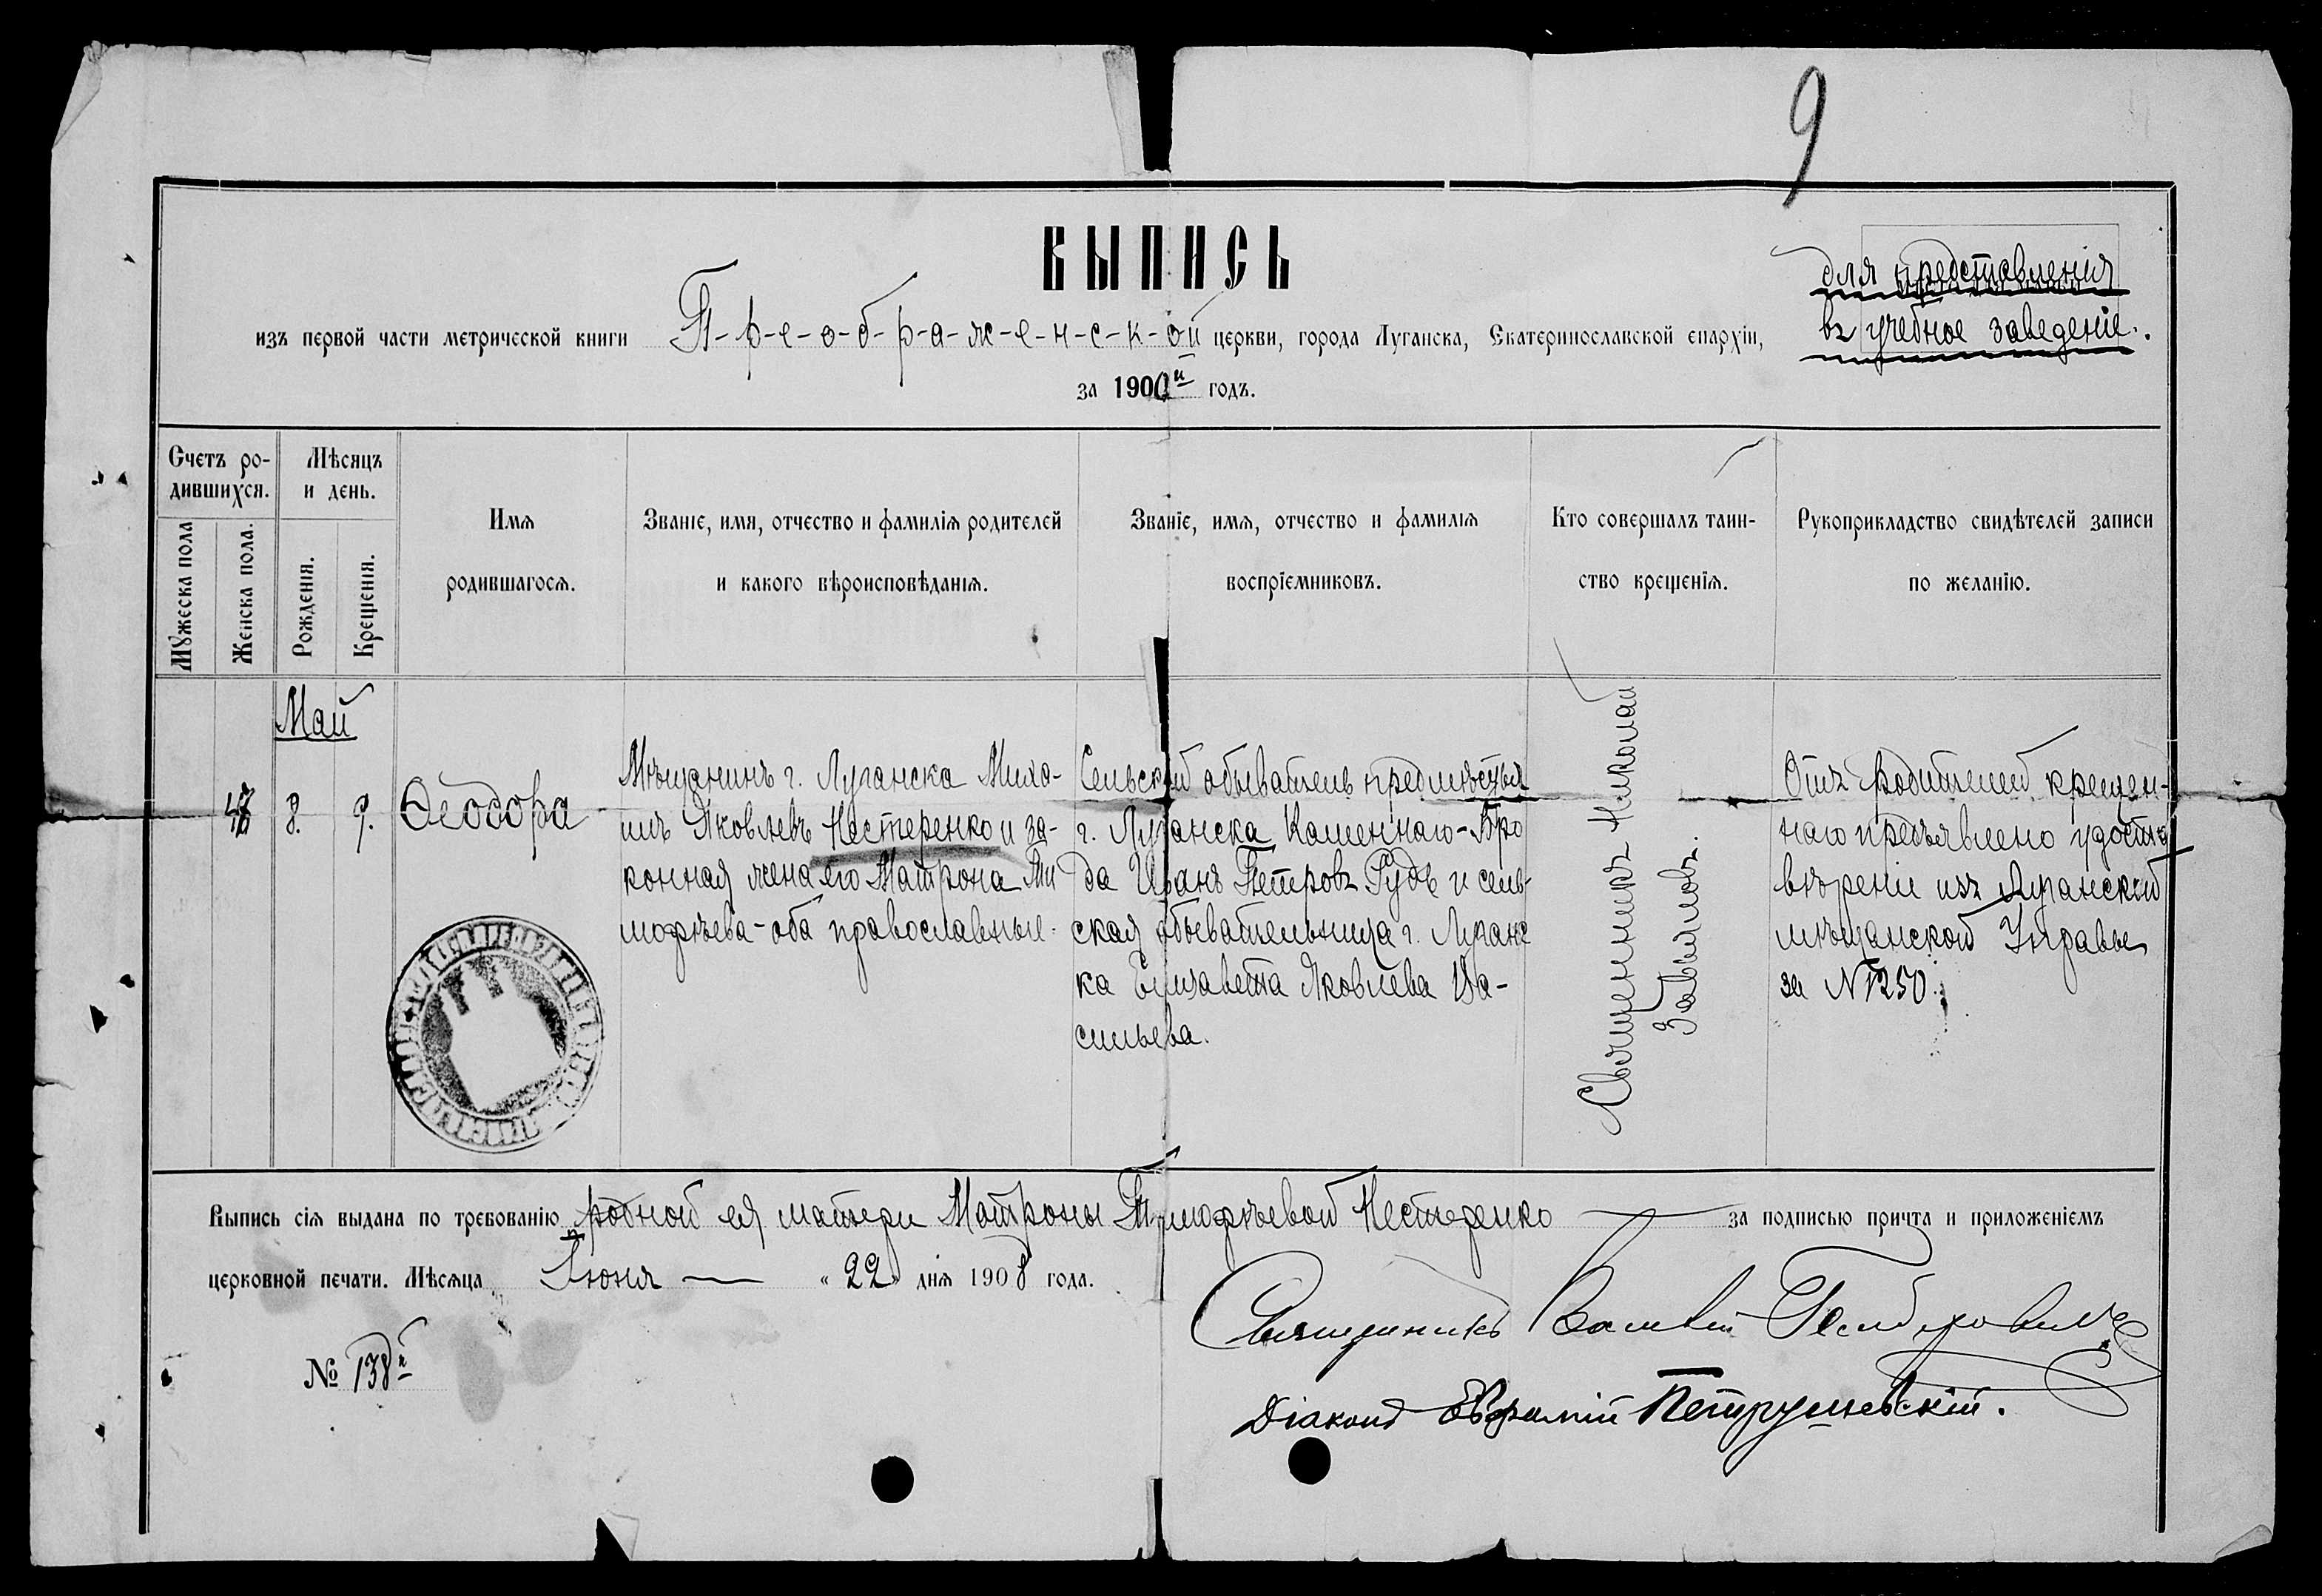 9
ВЫПИСЬ
для представленія
въ учебное заведеніе.
изъ первой части метрической книги П-р-е-о-б-р-а-ж-е-н-с-к-ой церкви, города Луганска, Екатеринославской епархіи,
за 1900й годъ.
Счетъ ро-
дившихся.
Мужеска пола
Женска пола.
Мѣсяцъ
и день.
Рожденія.
Крещенія.
Имя
родившагося.
Званіе, имя, отчество и фамилія родителей
и какого вѣроисповѣданія.
Званіе, имя, отчество и фамилія
воспріемниковъ.
Кто совершалъ таин-
ство крещенія.
Рукоприкладство свидѣтелей записи
по желанію.
Май
8.
9.
Ѳеодора
Мѣщанинъ г. Луганска Миха-
илъ Яковлевъ Нестеренко и за-
конная жена его Матрона Ти
мофѣева - оба православные.
Сельскій обыватель предмѣстья
г. Луганска Каменнаго-Бро
да Иванъ Петровъ Рудь и сель-
ская обывательница г. Луганс
ка Елизавета Яковлева Ва-
сильева.
Священникъ Николай
Отъ родителей крещен-
наго предъявлено удосто
вѣреніе изъ Луганской
мѣщанской Управы
за №1250.
Выпись сія выдана по требованію родной ея матери Матроны Тимофѣевой Нестеренко за подписью причта и приложеніемъ
церковной печати. Мѣсяца Іюня — „22" дня 1908 года.
№ 138й
Священникъ
Діаконъ Евфимій Петрушевскій.